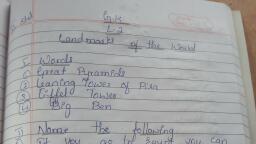 G.K
L-2
Landmarks of the World
I Words
① Great Pyramids
② Leaning Tower of Pisa
③ Eiffel Tower
④ Big Ben
II Name the following
If you go in you can